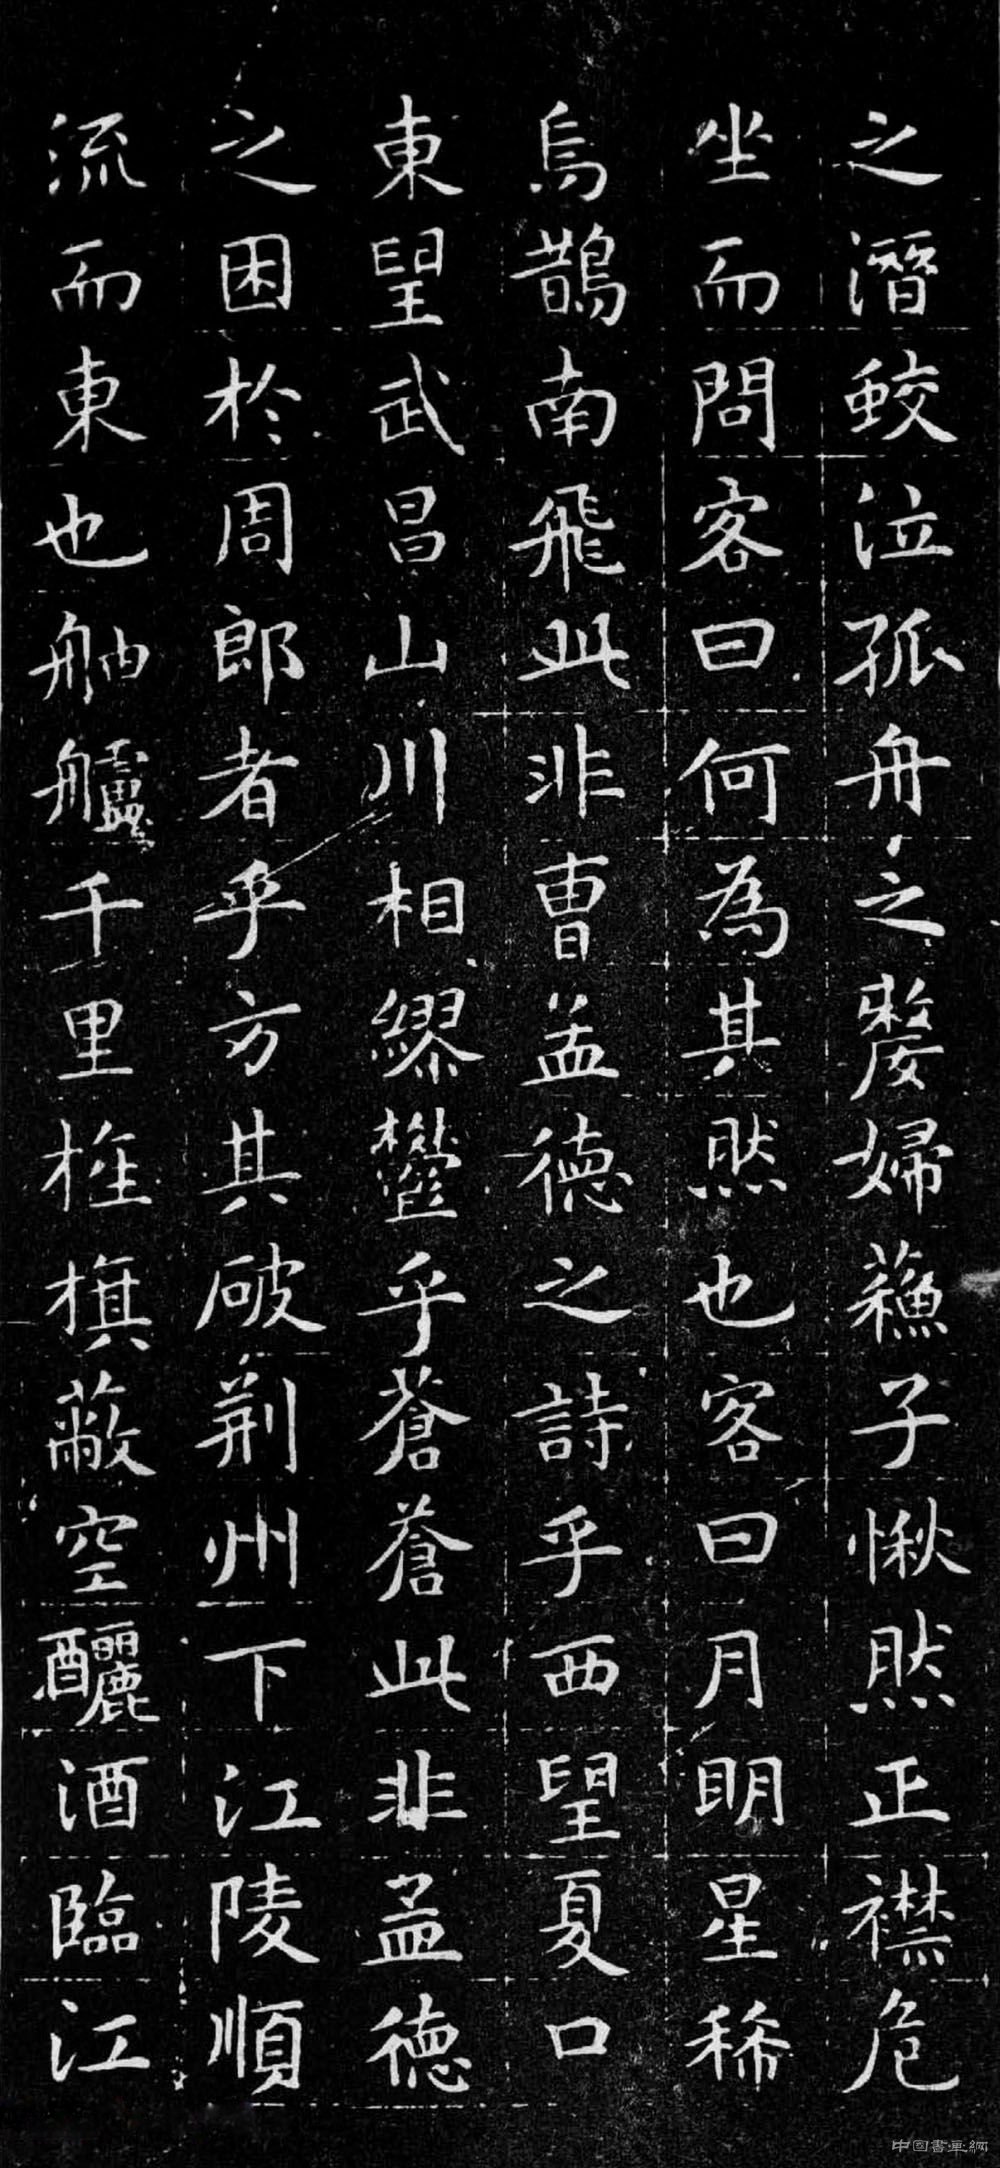 之潛蛟泣孤舟之嫠婦蘇子愀然正襟危
坐而問客曰何為其然也客曰月明星稀
烏鵲南飛此非曹孟德之詩乎西望夏口
東望武昌山川相繆鬱乎蒼蒼此非孟德
之困於周郎者乎方其破荆州下江陵順
流而東也舳艫千里旌旗蔽空釃酒臨江
中国書畫網